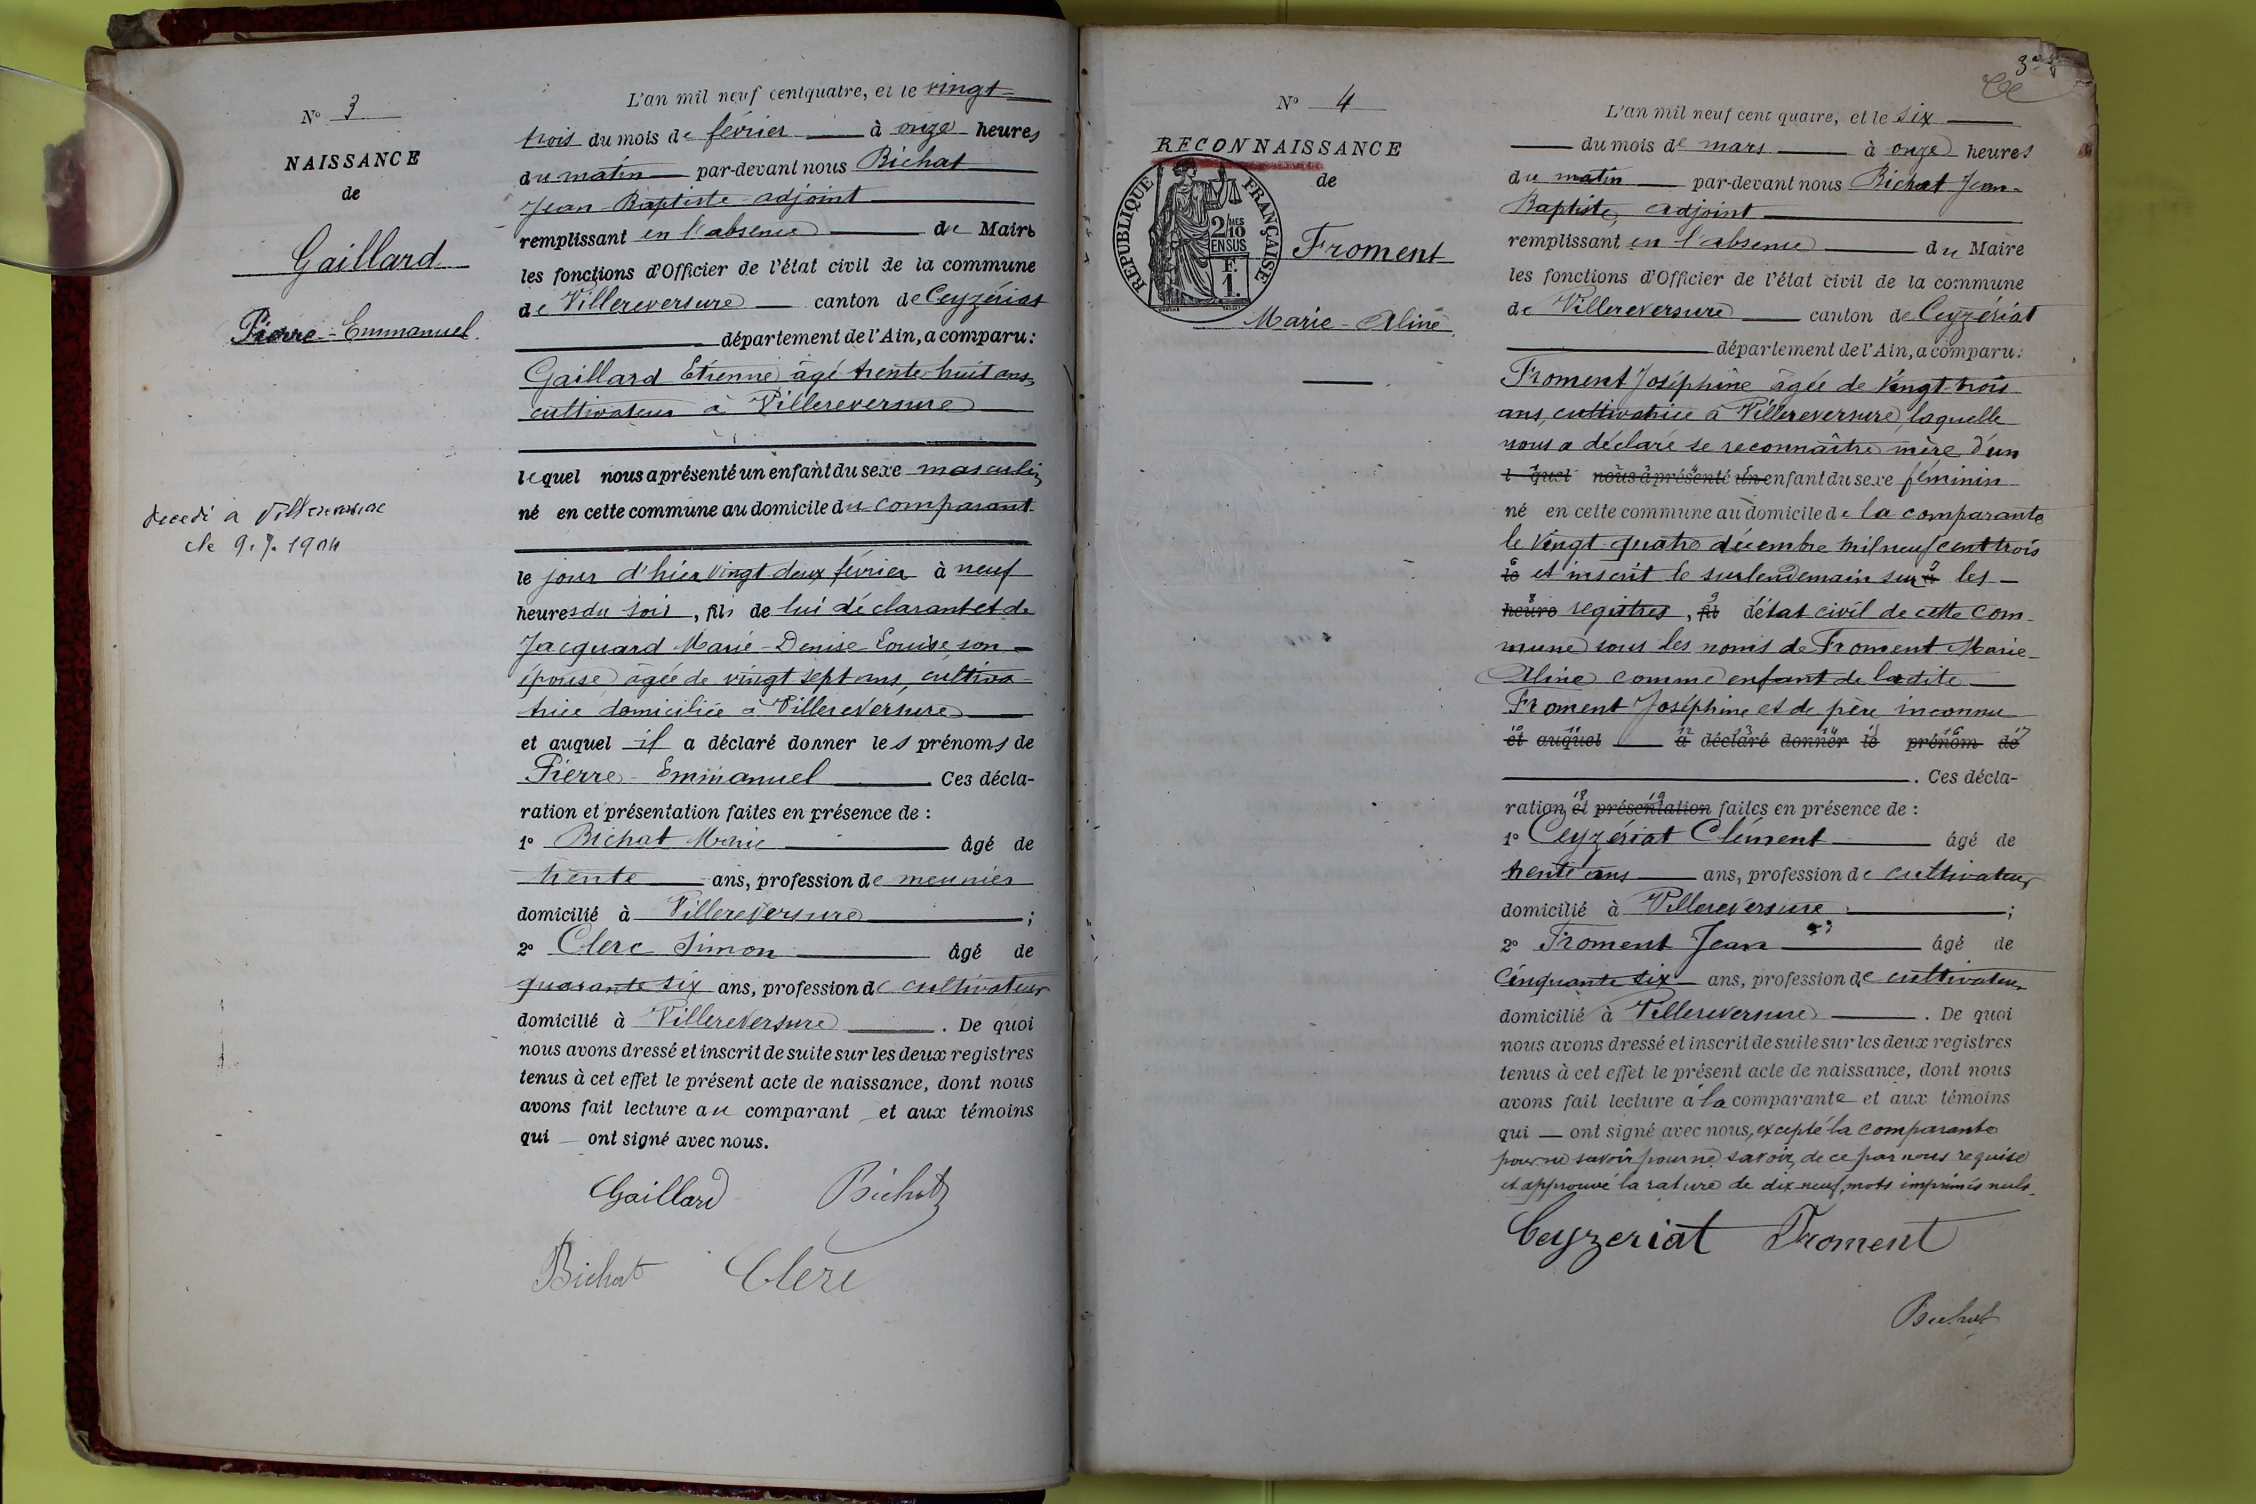 N° 3
NAISSANCE
de
Gaillard
Pierre-Emmanuel
décédé à Villereversure
le 9.7.1904
L'an mil neuf cent quatre, et le vingt
trois du mois de février à onze heures
du matin par-devant nous Bichat
Jean-Baptiste adjoint
remplissant en l'absence du Maire
les fonctions d'Officier de l'état civil de la commune
de Villereversure canton de Ceyzériat
département de l'Ain, a comparu :
Gaillard Etienne âgé trente-huit ans,
cultivateur à Villereversure
lequel nous a présenté un enfant du sexe masculin
né en cette commune au domicile du comparant
le jour d'hier vingt deux février à neuf
heures du soir, fils de lui déclarant et de
Jacquard Marie-Denise Louise son
épouse âgée de vingt sept ans, cultiva-
trice domiciliée à Villereversure
et auquel il a déclaré donner les prénoms de
Pierre-Emmanuel Ces décla-
ration et présentation faites en présence de :
1° Bichat Marie âgé de
trente ans, profession de meunier
domicilié à Villereversure ;
2° Clerc Simon âgé de
quarante six ans, profession de cultivateur
domicilié à Villereversure . De quoi
nous avons dressé et inscrit de suite sur les deux registres
tenus à cet effet le présent acte de naissance, dont nous
avons fait lecture au comparant et aux témoins
qui ont signé avec nous.
Gaillard Bichat
Bichat Clerc
3
N° 4
RECONNAISSANCE
de
RÉPUBLIQUE FRANÇAISE
2/10 MES
EN SUS
F.
1.
Froment
Marie-Aline
L'an mil neuf cent quatre, et le six
du mois de mars à onze heures
du matin par-devant nous Bichat Jean-
Baptiste, adjoint
remplissant en l'absence du Maire
les fonctions d'Officier de l'état civil de la commune
de Villereversure canton de Ceyzériat
département de l'Ain, a comparu :
Froment Joséphine âgée de vingt-trois
ans, cultivatrice à Villereversure, laquelle
nous a déclaré se reconnaître mère d'un
l quel nous a présenté un enfant du sexe féminin
né en cette commune au domicile de la comparante
le vingt-quatre décembre mil neuf cent trois
le et inscrit le surlendemain sur à les
heure registres, fil d'état civil de cette com-
mune sous les noms de Froment Marie-
Aline comme enfant de la dite
Froment Joséphine et de père inconnu
et auquel a déclaré donner le prénom de
. Ces décla-
ration et présentation faites en présence de :
1° Ceyzériat Clément âgé de
trente ans ans, profession de cultivateur
domicilié à Villereversure ;
2° Froment Jean âgé de
cinquante six ans, profession de cultivateur
domicilié à Villereversure . De quoi
nous avons dressé et inscrit de suite sur les deux registres
tenus à cet effet le présent acte de naissance, dont nous
avons fait lecture à la comparante et aux témoins
qui ont signé avec nous, excepté la comparante
pour ne savoir pour ne savoir, de ce par nous requise
et approuvé la rature de dix-neuf mots imprimés nuls.
Ceyzeriat Froment
Bichat